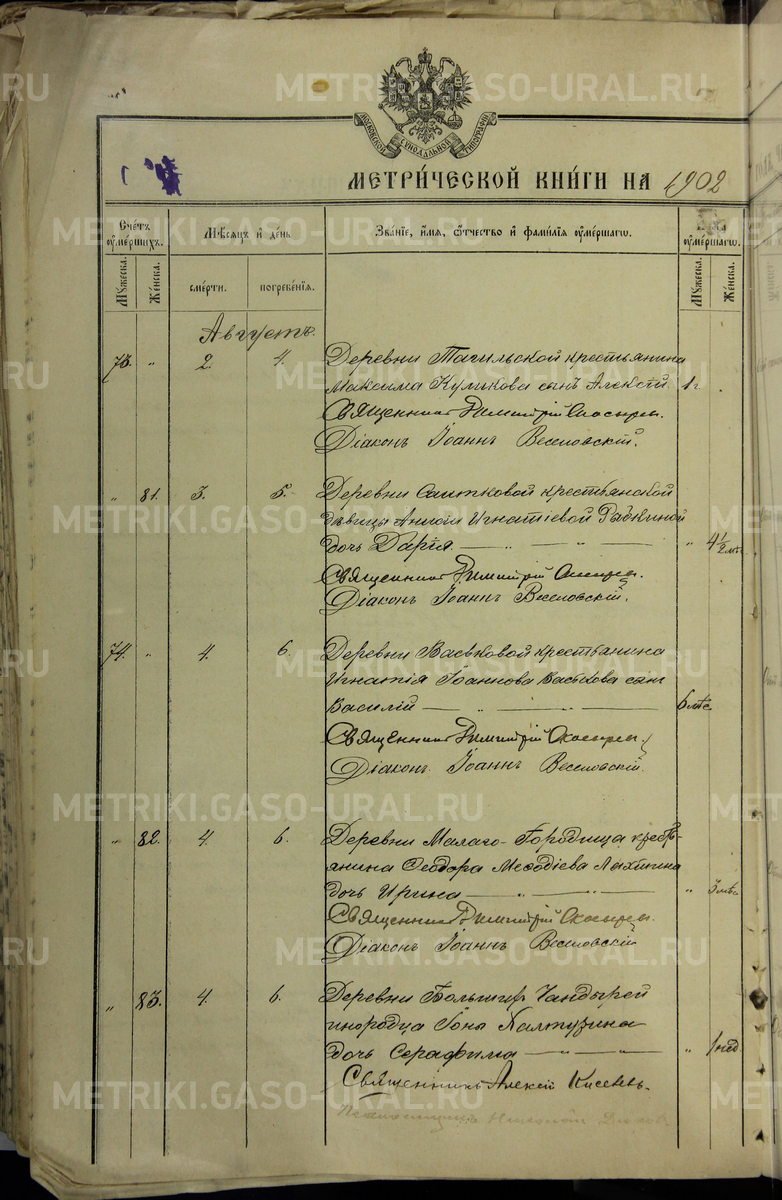 МОСКОВСКОЙ СѴНОДАЛЬНОЙ ТИПОГРАФІИ
МЕТРИ́ЧЕСКОЙ КНИ́ГИ НА 1902
Сче́тъ ᲂу҆ме́ршихъ.
Мѣ́сяцъ и҆ де́нь
Зва́нїе, и҆́мя, ѻ҆́тчество и҆ фами́лїя ᲂу҆ме́ршагѡ.
ᲂу҆ме́ршагѡ.
Мꙋ́жеска.
Же́нска.
сме́рти.
погребе́нїя.
Мꙋ́жеска.
Же́нска.
Августъ.
73. " 2. 4. Деревни Тагильской крестьянина
Максима Куликова сынъ Алексѣй 1 г.
Священникъ Димитрій Скосыревъ.
Діаконъ Іоаннъ Веселовскій.
" 81. 3. 5. Деревни Саитковой крестьянской
дѣвицы Анисіи Игнатіевой
дочь Дарія. " 4 ½ мѣс.
Священникъ Димитрій Скосыревъ.
Діаконъ Іоаннъ Веселовскій.
74. " 4. 6. Деревни Васьковой крестьянина
Игнатія Іоаннова Васькова сынъ
Василій 6 мѣс.
Священникъ Димитрій Скосыревъ.
Діаконъ Іоаннъ Веселовскій.
" 82. 4. 6. Деревни Малаго-Городища крестьянина
Ѳеодора Меѳодіева Лахтина
дочь Ирина " 3 мѣс.
Священникъ Димитрій Скосыревъ.
Діаконъ Іоаннъ Веселовскій
" 83. 4. 6. Деревни Большихъ Чандырей
инородца Іоны Халтурина
дочь Серафима " 1 нед.
Священникъ Алексій Киселевъ.
Псаломщикъ Николай
METRIKI.GASO-URAL.RU